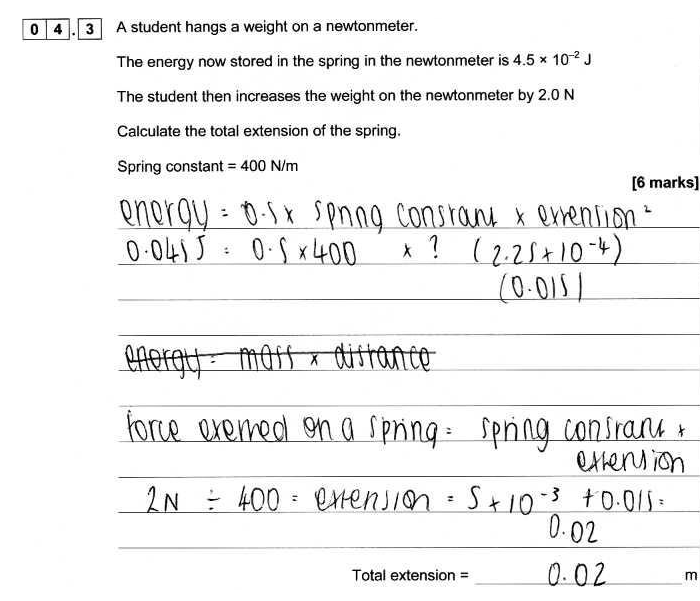 04.3 A student hangs a weight on a newtonmeter.
The energy now stored in the spring in the newtonmeter is 4.5 × 10⁻² J
The student then increases the weight on the newtonmeter by 2.0 N
Calculate the total extension of the spring.
Spring constant = 400 N/m
[6 marks]
energy = 0.5 x spring constant x extension²
0.045J = 0.5 x 400 x ? (2.25 x 10⁻⁴)
(0.015)
energy = mass x distance
force exerted on a spring = spring constant x
extension
2N ÷ 400 = extension = 5 x 10⁻³ + 0.015 =
0.02
Total extension = 0.02 m